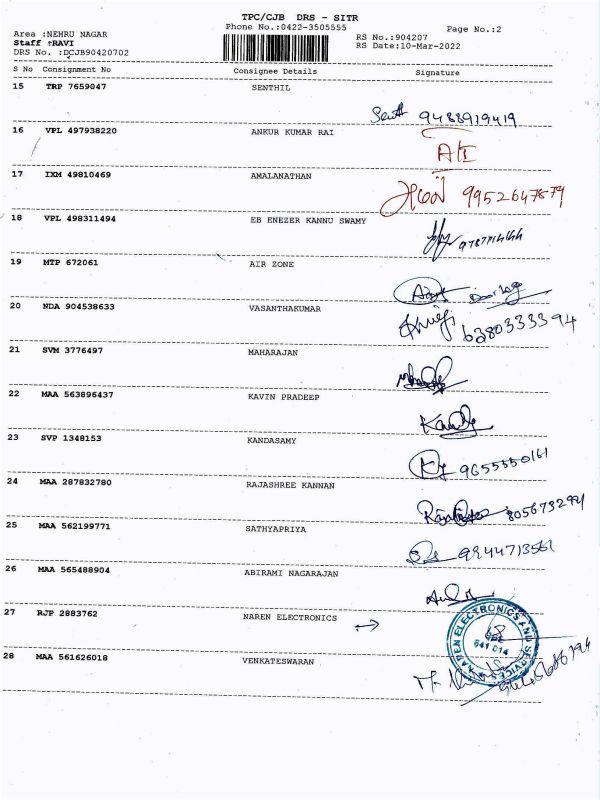 TPC/CJB DRS - SITR
Phone No.:0422-3505555
Page No.:2
Area :NEHRU NAGAR
Staff :RAVI
DRS No. :DCJB90420702
RS No.:904207
RS Date:10-Mar-2022
S No Consignment No Consignee Details Signature
15 TRP 7659047 SENTHIL
9488919419
16 VPL 497938220 ANKUR KUMAR RAI
17 IXM 49810469 AMALANATHAN
9952647879
18 VPL 498311494 EB ENEZER KANNU SWAMY
19 MTP 672061 AIR ZONE
20 NDA 904538633 VASANTHAKUMAR
6380333394
21 SVM 3776497 MAHARAJAN
22 MAA 563896437 KAVIN PRADEEP
23 SVP 1348153 KANDASAMY
9655550161
24 MAA 287832780 RAJASHREE KANNAN
805673294
25 MAA 562199771 SATHYAPRIYA
9944713561
26 MAA 565488904 ABIRAMI NAGARAJAN
27 RJP 2883762 NAREN ELECTRONICS →
NAREN ELECTRONICS AND SERVICES
641 014
28 MAA 561626018 VENKATESWARAN